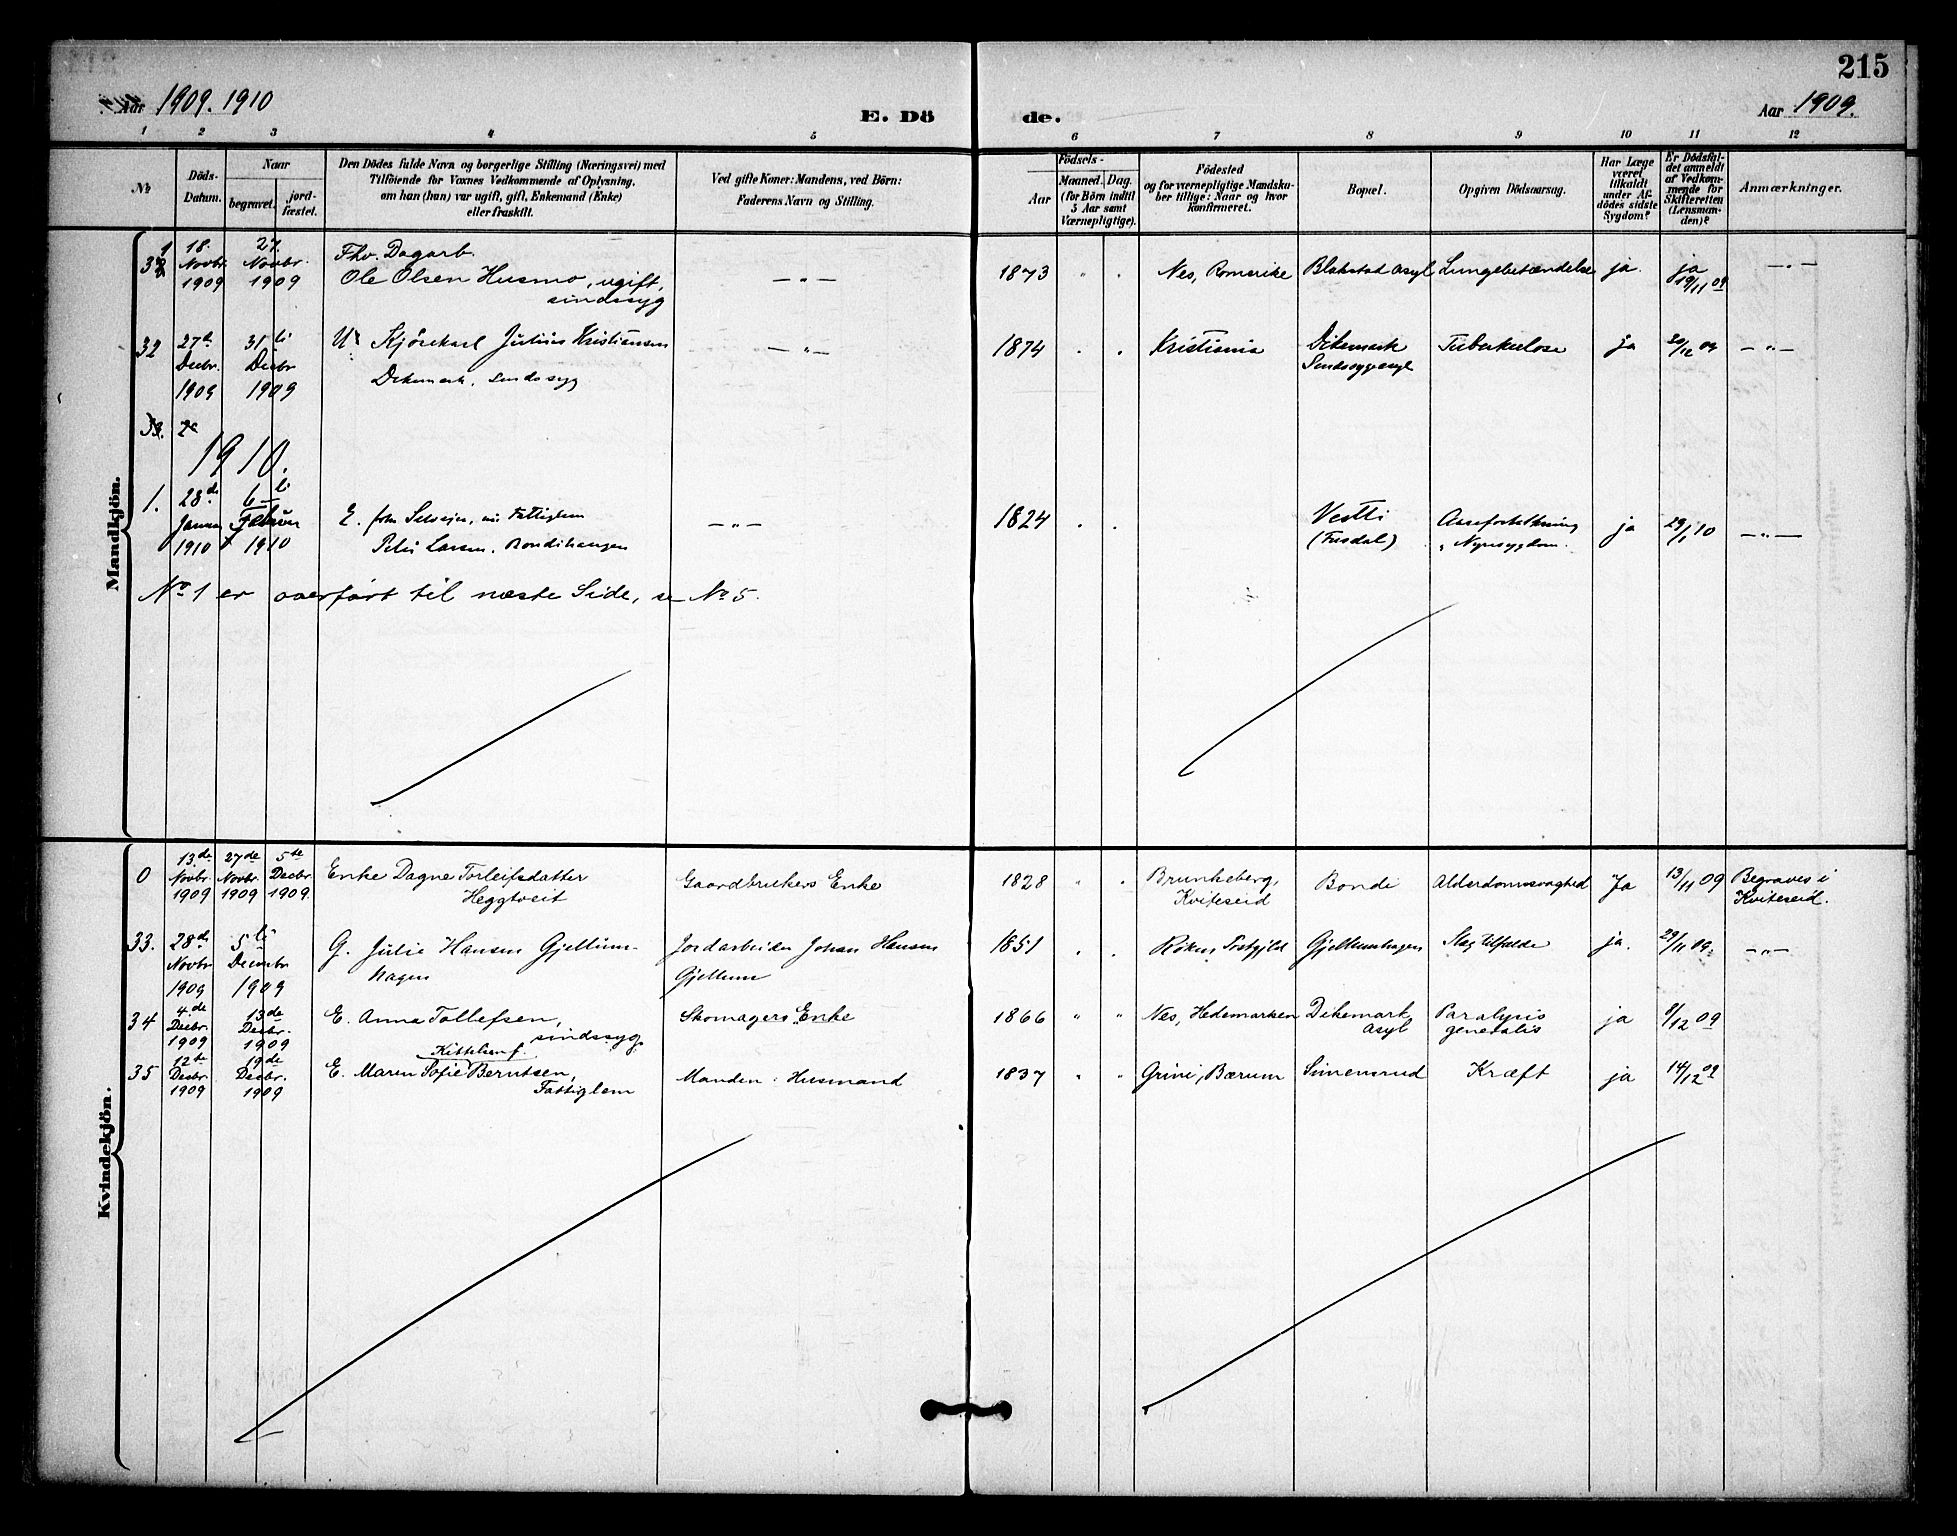 215
Aar 1909. 1910
E. Dö
de.
Aar 1909.
1 2 3 4 5 6 7 8 9 10 11 12
No
Döds-
Datum.
Naar
begravet.
jord-
fæstet.
Den Dödes fulde Navn og borgerlige Stilling (Næringsvei) med
Tilföiende for Voxnes Vedkommende af Oplysning,
om han (hun) var ugift, gift, Enkemand (Enke)
eller fraskilt.
Ved gifte Koner: Mandens, ved Börn:
Faderens Navn og Stilling.
Födsels-
Aar
Maaned. Dag.
(for Börn indtil
5 Aar samt
Værnepligtige).
Födested
og for værnepligtige Mandska-
ber tillige: Naar og hvor
konfirmeret.
Bopæl.
Opgiven Dödsaarsag.
Har Læge
været
tilkaldt
under Af-
dödes sidste
Sygdom?
Er Dödsfal-
det anmeldt
af Vedkom-
mende for
Skifteretten
(Lensman-
den)?
Anmærkninger.
Mandkjön.
31
18. Novbr. 1909
27. Novbr. 1909
Fhv. Dagarb.
Ole Olsen Husmo, ugift,
sindssyg
— " —
1873 " .
Nes, Romerike
Blakstad asyl
Lungebetændelse
ja.
ja 19/11 09
— " —
32
27de Decbr. 1909
31te Decbr 1909
U. Kjörekarl Julius Kristiansen
Dikemark, sindssyg
— " —
1874 . .
Kristiania
Dikemark
Sindssygeasyl
Tuberkulose
ja
/12 09
— " —
33. 2
1910.
1.
28de Januar 1910
6te Februar 1910
E. forh. Selveier, nu Fattiglem
Peter Larsen, Bondihaugen
— " —
1824 . .
Vestli
(Fusdal)
Aareforkalkning
, Nyresygdom.
ja
29/1 10
— " —
No 1 er overført til næste Side, se No 5.
Kvindekjön.
0
13de Novbr. 1909
27de Novbr. 1909
5te Decbr. 1909.
Enke Dagne Torleifsdatter
Heggtveit
Gaardbrukers Enke
1828 " .
Brunkeberg,
Kviteseid
Bondi
Alderdomssvaghed
Ja
13/11 09
Begraves i
Kviteseid.
33.
28de Novbr 1909
5te Decembr 1909
G. Julie Hansen Gjellum-
hagen
Jordarbeider Johan Hansen
Gjellum
1851 . .
Röken Prstgjld
Gjellumhagen
Slagtilfælde
ja.
29/11 09.
— " —
34
4.de Decbr. 1909
13de Decbr. 1909
E. Anna Tollefsen,
sindssyg
Skomagers Enke
1866 " "
Nes, Hedemarken
Dikemark
asyl
Paralysis
generalis
ja
8/12 09
35
12te Decbr. 1909
19de Decbr. 1909
Kittelsen f.
E. Maren Sofie Berntsen,
Fattiglem
Manden: Husmand
1837 " "
Grini, Bærum
Simensrud
Kræft
ja
14/12 09